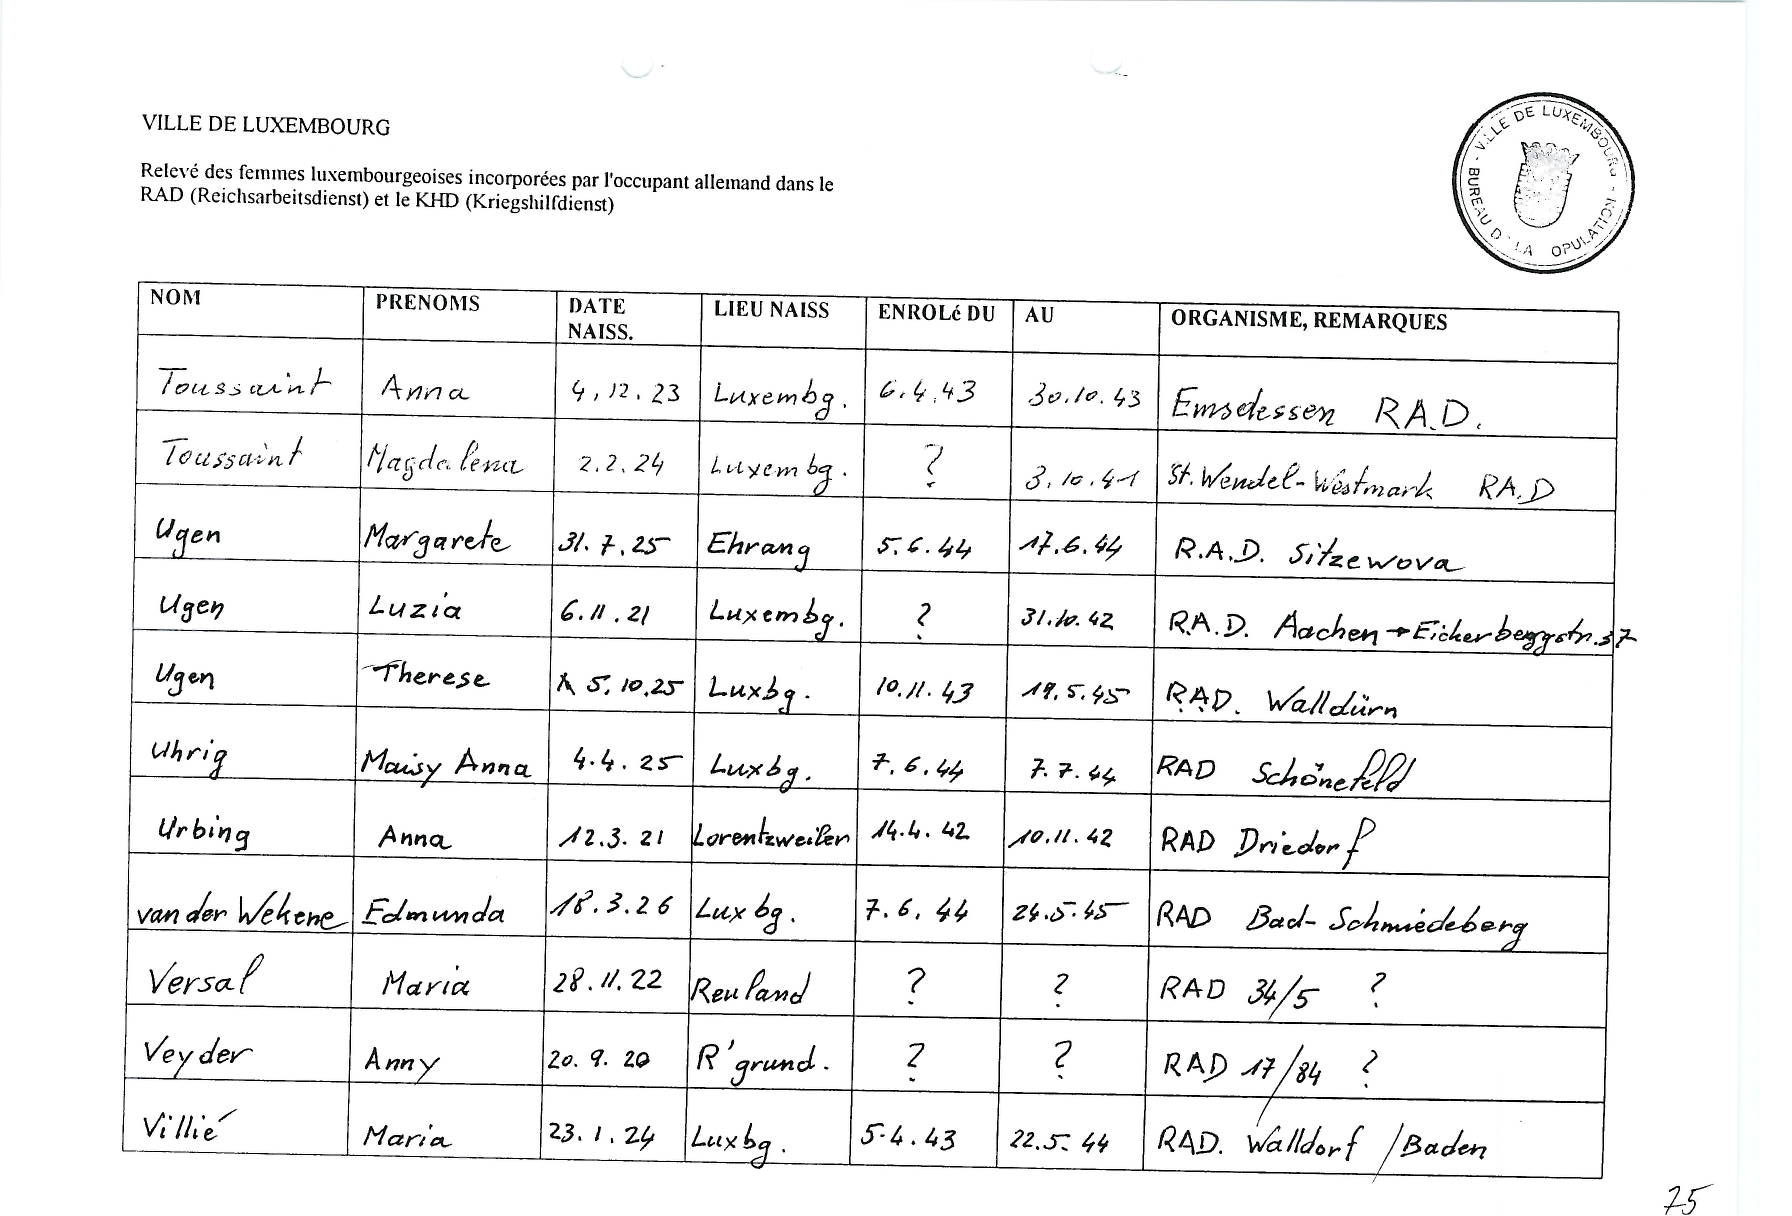 VILLE DE LUXEMBOURG
Relevé des femmes luxembourgeoises incorporées par l'occupant allemand dans le
RAD (Reichsarbeitsdienst) et le KHD (Kriegshilfdienst)
VILLE DE LUXEMBOURG - BUREAU D LA OPULATION -
NOM PRENOMS DATE NAISS. LIEU NAISS ENROLé DU AU ORGANISME, REMARQUES
Toussaint Anna 4.12.23 Luxembg. 6.4.43 30.10.43 Emsdessen R.A.D.
Toussaint Magdalena 2.2.24 Luxembg. ? 3.10.41 St. Wendel-Westmark RA.D
Ugen Margarete 31.7.25 Ehrang 5.6.44 17.6.44 R.A.D. Sitzewova
Ugen Luzia 6.11.21 Luxembg. ? 31.10.42 R.A.D. Aachen → Eickerbeggstr. 37
Ugen Therese 5.10.25 Luxbg. 10.11.43 19.5.45 R.A.D. Walldürn
Uhrig Maisy Anna 4.4.25 Luxbg. 7.6.44 7.7.44 RAD Schönefeld
Urbing Anna 12.3.21 Lorentzweiler 14.4.42 10.11.42 RAD Driedorf
van der Wekene Edmunda 18.3.26 Luxbg. 7.6.44 24.5.45 RAD Bad-Schmiedeberg
Versal Maria 28.11.22 Reuland ? ? RAD 34/5 ?
Veyder Anny 20.9.20 R'grund. ? ? RAD 17/84 ?
Villié Maria 23.1.24 Luxbg. 5.4.43 22.5.44 RAD. Walldorf /Baden
75